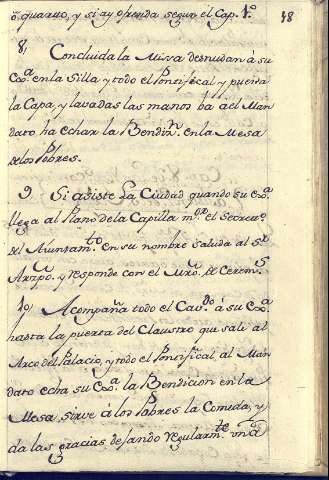 ō quarto, y si ay ofrenda segun el Cap. 1.º
48
8, Concluida la Missa desnudan á su
Exª. en la Silla y todo el Pontifical y puesta
la Capa, y lavadas las manos ba á el Man
dato, ha echar la Bendin. en la Mesa
de los Pobres.
9. Si asiste la Ciudad quando su Exª.
llega al Plano de la Capilla mor. el Secreto.
del Aiuntamto. en su nombre saluda al Sr.
Arzpo. y responde con el Mro. de Cerems.
10 Acompaña todo el Cavdo. á su Exª.
hasta la puerta del Claustro que sale al
Arco del Palacio, y todo el Pontifical al Man
dato echa su Exª. la Bendicion en la
Mesa sirve á los Pobres la Comida, y
da las gracias dejando regularmte. una